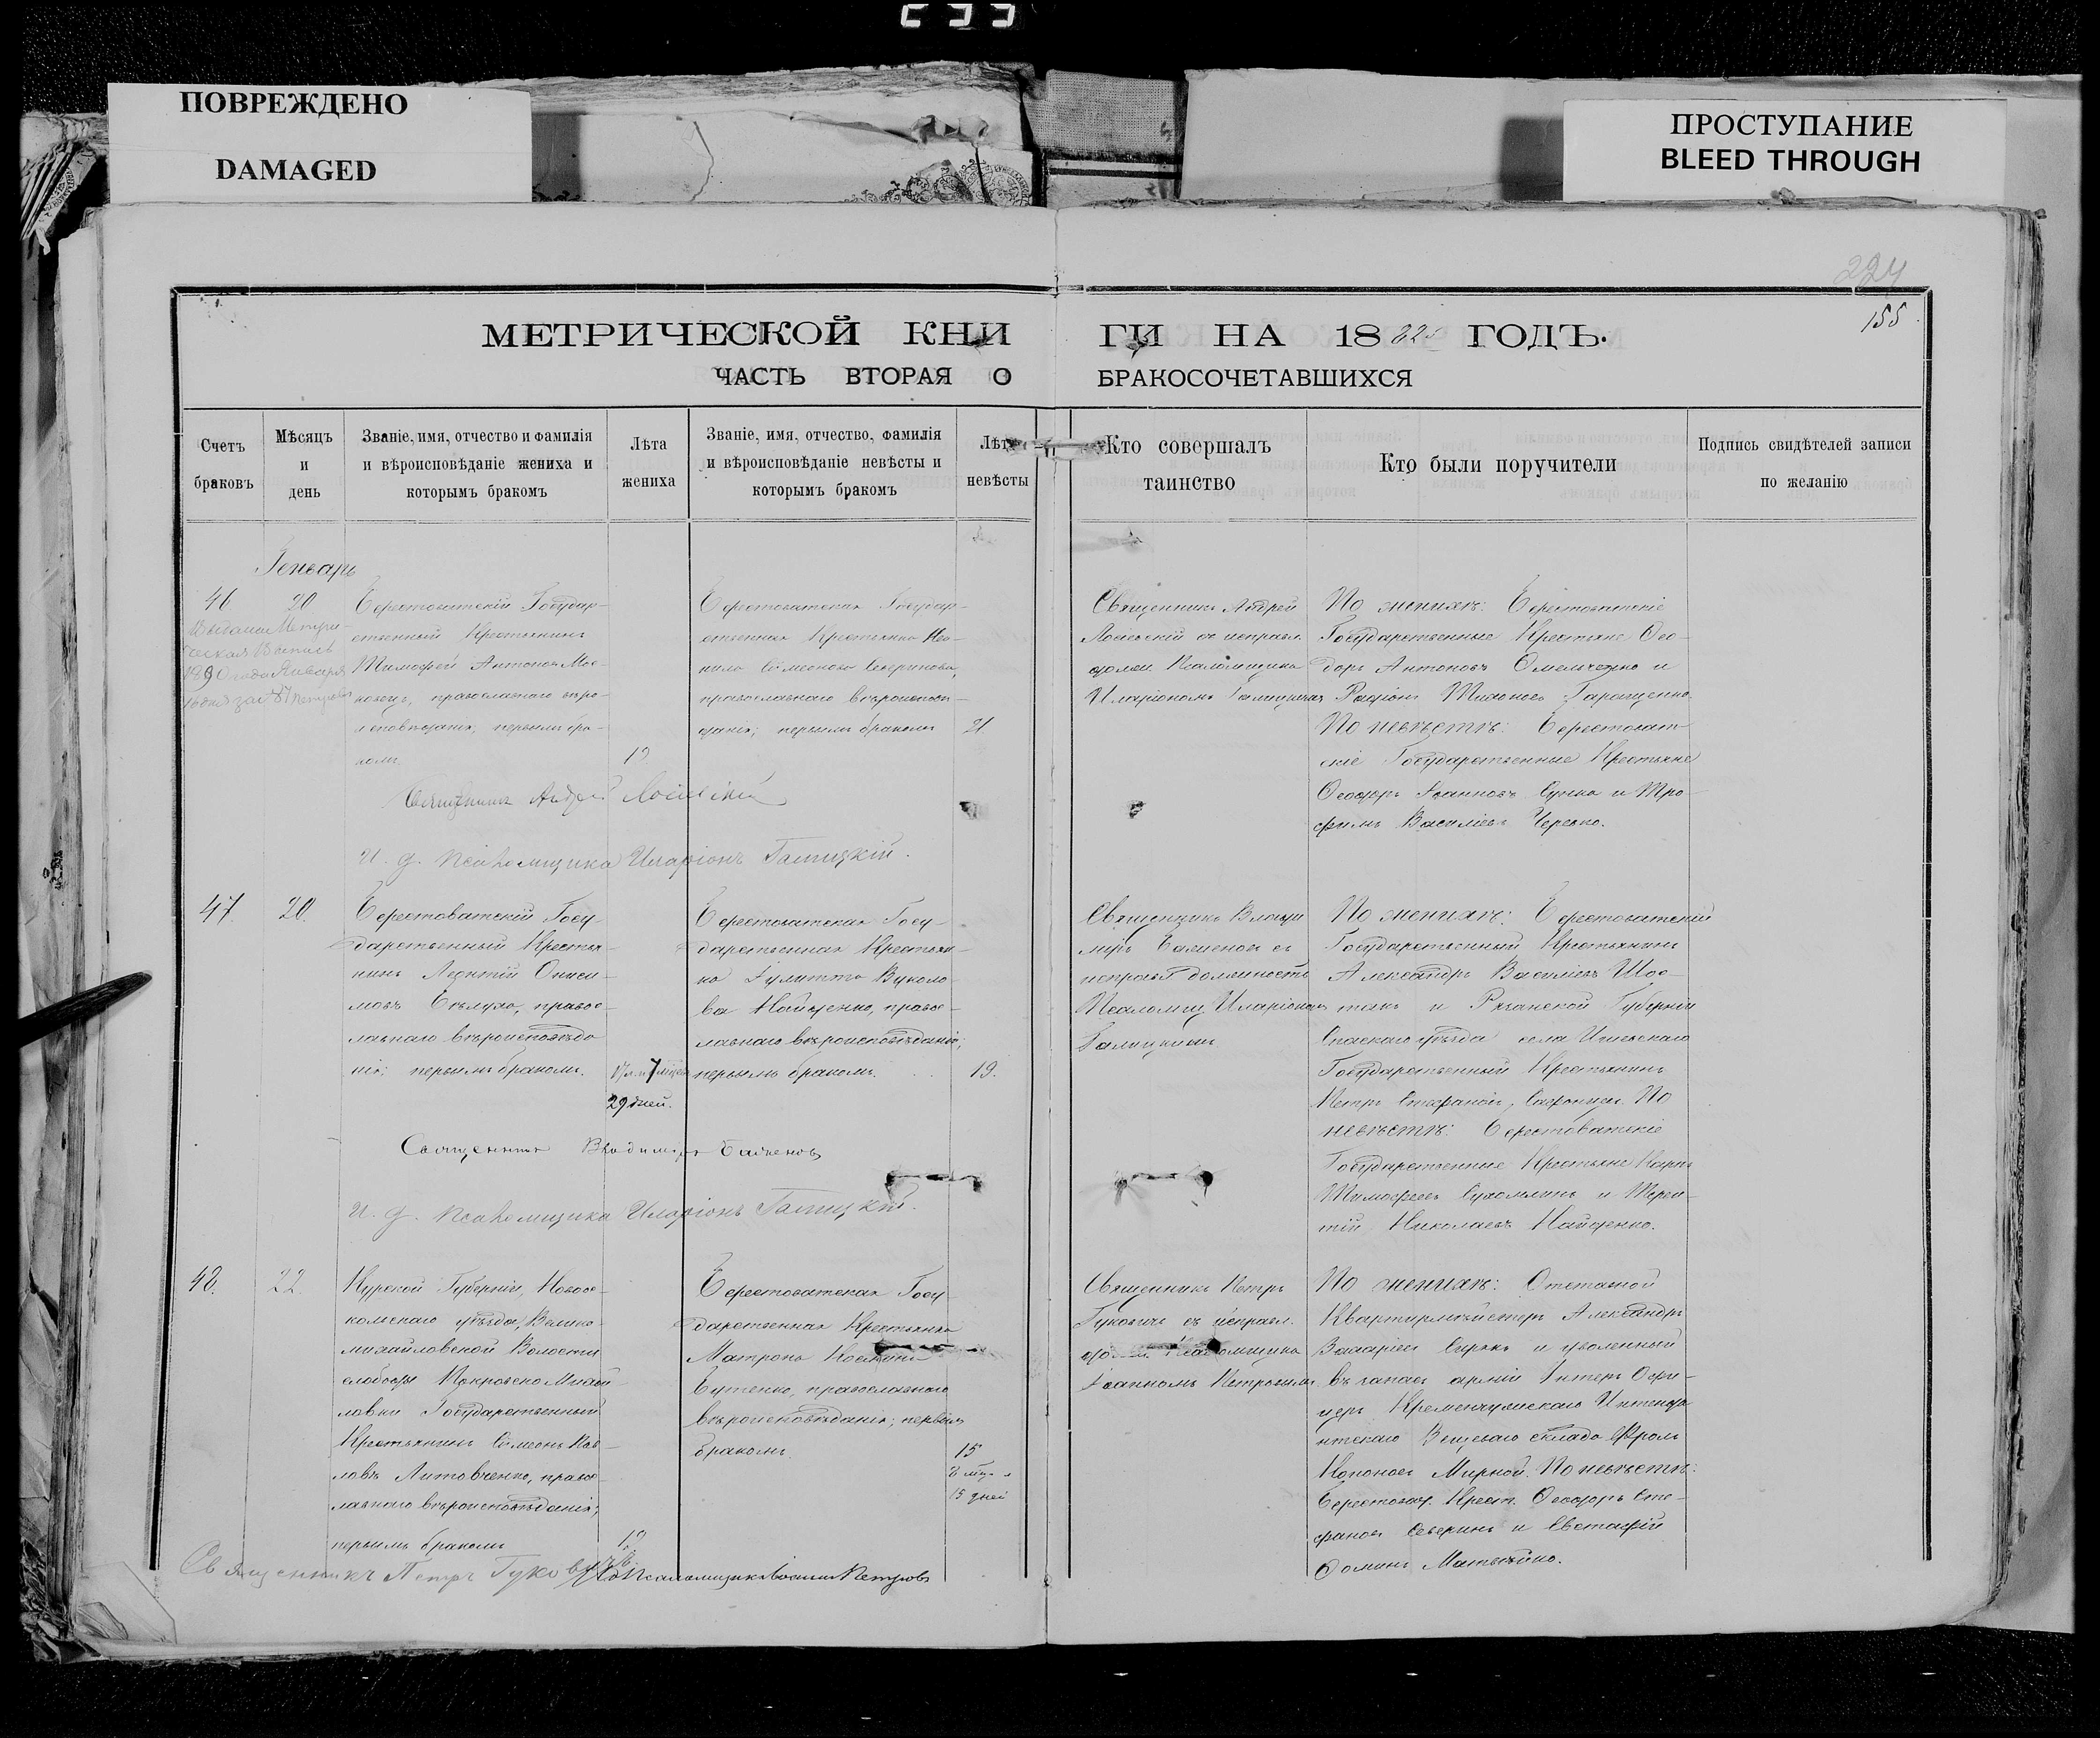 ПОВРЕЖДЕНО
DAMAGED
ПРОСТУПАНИЕ
BLEED THROUGH
224
155
МЕТРИЧЕСКОЙ КНИ
ГИ НА 18 ГОДЪ.
ЧАСТЬ ВТОРАЯ О
БРАКОСОЧЕТАВШИХСЯ
Счетъ
браковъ
Мѣсяцъ
и
день
Званіе, имя, отчество и фамилія
и вѣроисповѣданіе жениха и
которымъ бракомъ
Лѣта
жениха
Званіе, имя, отчество, фамилія
и вѣроисповѣданіе невѣсты и
которымъ бракомъ
Лѣта
невѣсты
Кто совершалъ
таинство
Кто были поручители
Подпись свидѣтелей записи
по желанію
Генварь
46
20
Берестоватскій Государ-
ственный Крестьянинъ
Тимофей Антоновъ Мос-
ковецъ, православнаго вѣро-
исповѣданія, первымъ бра-
комъ.
19
Берестоватская Государ-
ственная Крестьянка
Сѵмеонова Северинова,
православнаго вѣроисповѣ-
данія; первымъ бракомъ
21.
Священникъ Андрей
Лосіевскій съ исправл.
должн. Псаломщика
Иларіономъ Галицкимъ
По женихѣ: Берестоватскіе
Государственные Крестьяне Ѳео-
доръ Антоновъ Омельченко и
Родіонъ Тихоновъ Гаращенко.
По невѣстѣ: Берестоват-
скіе Государственные Крестьяне
Ѳеодоръ Іоанновъ и Тро-
фимъ Василіевъ Черевко.
Священникъ Андрей Лосіевскій
И. д. псаломщика Иларіонъ Галицкій.
47.
20.
Берестоватскій Госу-
дарственный Крестья-
нинъ Леонтій Ониси-
мовъ Бѣлуха, правос-
лавнаго вѣроисповѣда
нія; первымъ бракомъ.
29 дней.
Берестоватская Госу-
дарственная Крестьян-
ка Іулитта Вуколо-
ва Найденко, правос-
лавнаго вѣроисповѣданія;
первымъ бракомъ.
19.
Священникъ Влади
міръ Баженовъ съ
исправл. должность
Псаломщ. Иларіономъ
Галицкимъ
По женихѣ: Берестоватскій
Государственный Крестьянинъ
Александръ Василіевъ Шос-
такъ и Рязанской Губерніи
Спасскаго уѣзда села
Государственный Крестьянинъ
Петръ Стефановъ Сафонкинъ. По
невѣстѣ: Берестоватскіе
Государственные Крестьяне Карпъ
Тимофеевъ Сухомлинъ и Терен-
тій Николаевъ Найденко.
Священникъ Владиміръ Баженовъ
И. д. псаломщика Иларіонъ Галицкій.
48.
22.
Курской Губерніи, Новоос-
кольскаго уѣзда, Велико-
михайловской Волости
слободы Покровско Михай-
ловки Государственный
Крестьянинъ Сѵмеонъ Пав-
ловъ Литовченко, правос-
лавнаго вѣроисповѣданія;
первымъ бракомъ
Берестоватская Госу-
дарственная Крестьянка
Матрона Косьмина
Бутенко, православнаго
вѣроисповѣданія; первымъ
бракомъ.
15
15 дней
Священникъ Петръ
Гуковичъ съ исправл.
должн. Псаломщика
Іоанномъ Петровымъ
По женихѣ: Отставной
Квартирмейстеръ Александръ
Захаріевъ и уволенный
въ запасъ арміи Унтеръ Офи-
церъ Кременчугскаго Интенда
нтскаго Вещеваго склада Фролъ
Кононовъ Мирной. По невѣстѣ:
Берестоват. Крест. Ѳеодоръ Сте-
фановъ Северинъ и Евстафій
Ѳоминъ
Священникъ Петръ Гуковичъ
Псаломщика Іоаннъ Петровъ